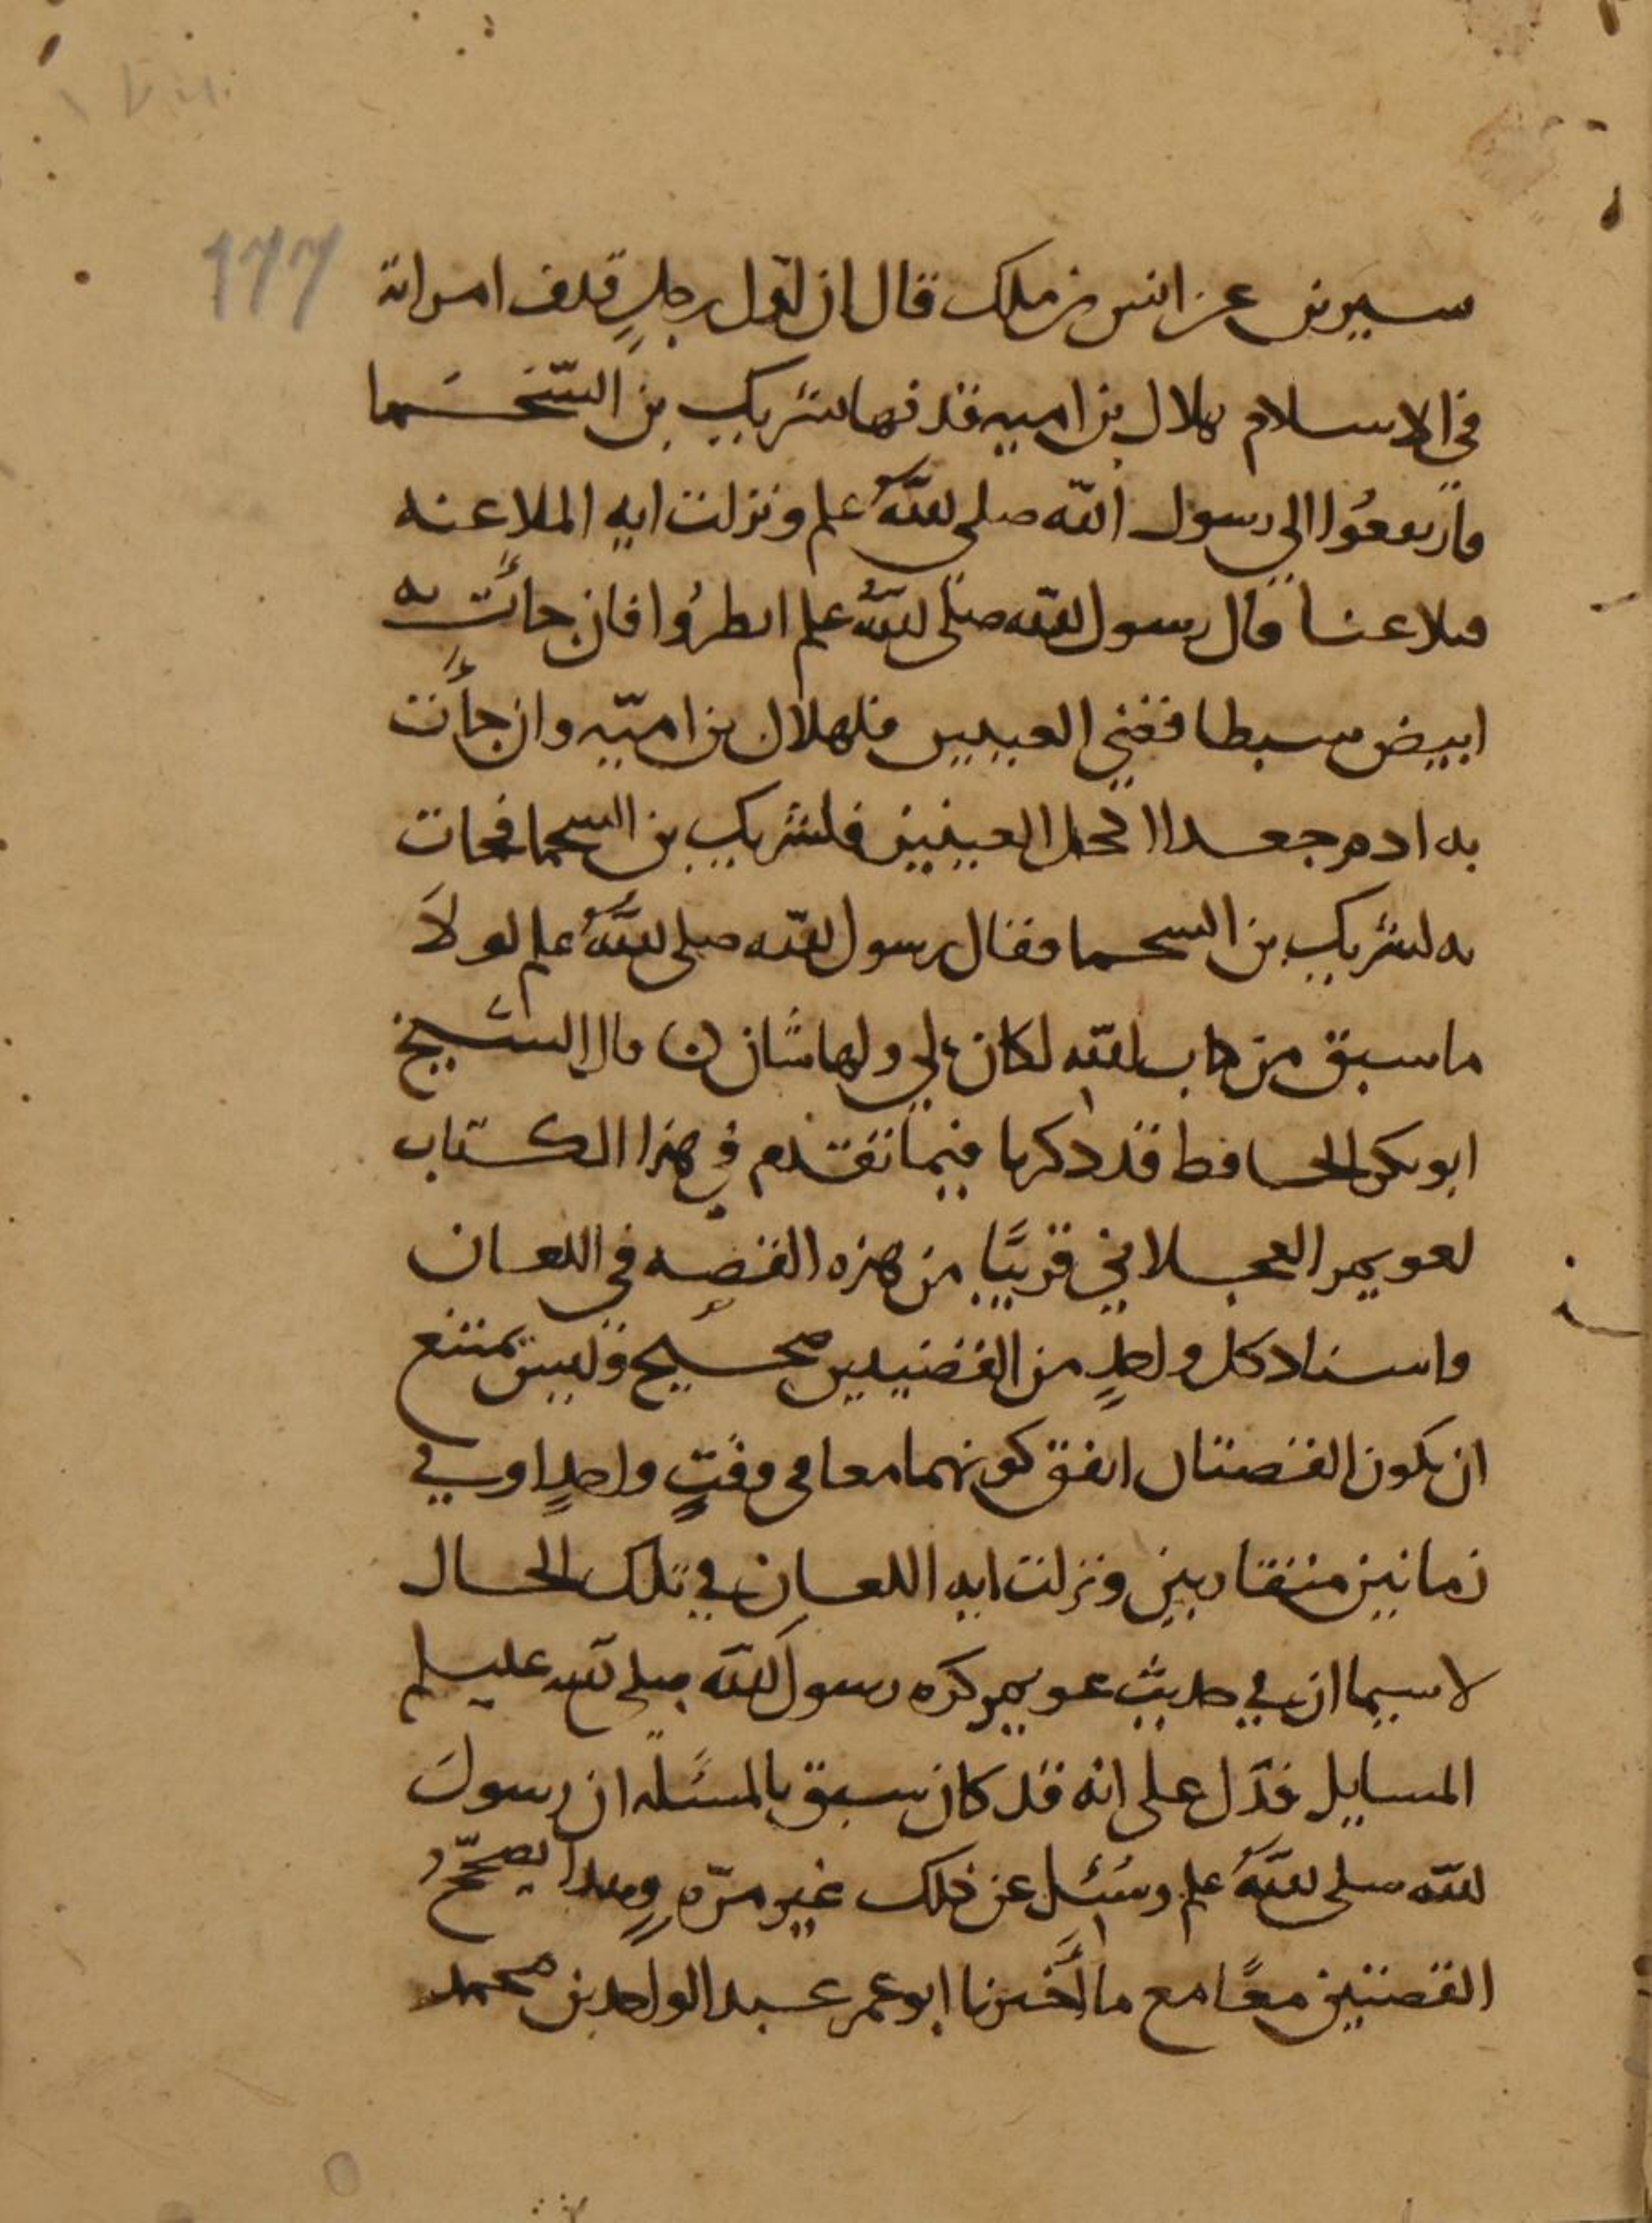 177
سيرين عن انس بن ملك قال ان اول رجلٍ قذف امراته
في الاسلام هلال بن اميه قذفها بشريك بن السّحَسَما
فارتفعُوا الى رسول الله صلى اللهُ علم ونزلت ايه الملاعنه
فتلاعنا فقال رسول الله صلى اللهُ علم انظرُوا فان جاَت به
ابيض سبطا قضي العينين فلهلال بن اميّه وان جاَت
به ادم جعدا اكحل العينين فلشريك بن السحما فجات
به لشريك بن السحما فقال رسول الله صلى اللهُ علم لولَا
ما سبق من كتاب الله لكان لي ولها شان ن قال الشيخ
ابو بكر الحافظ قد ذكرنا فيما تقدم في هذا الكتاب
لعويمر العجلاني قريبًا من هذه القصه في اللعان
واسناد كل واحدٍ من القضيتين صحيح وليس بممتنع
ان يكون القصتان اتفق كونهما معا في وقتٍ واحدٍ او في
زمانين متقاربين ونزلت ايه اللعان في تلك الحال
لا سيما ان في حديث عويمر كره رسول الله صلى الله عليسلم
المسايل فدَل على انه قد كان سبق بالمسَله ان رسولَ
الله صلى اللهُ علم وسُئل عن ذلك غير مرّه وهذا يصحّحُ
القصتين معًا مع ما اَخبرنا ابو عمر عبد الواحد بن محمد